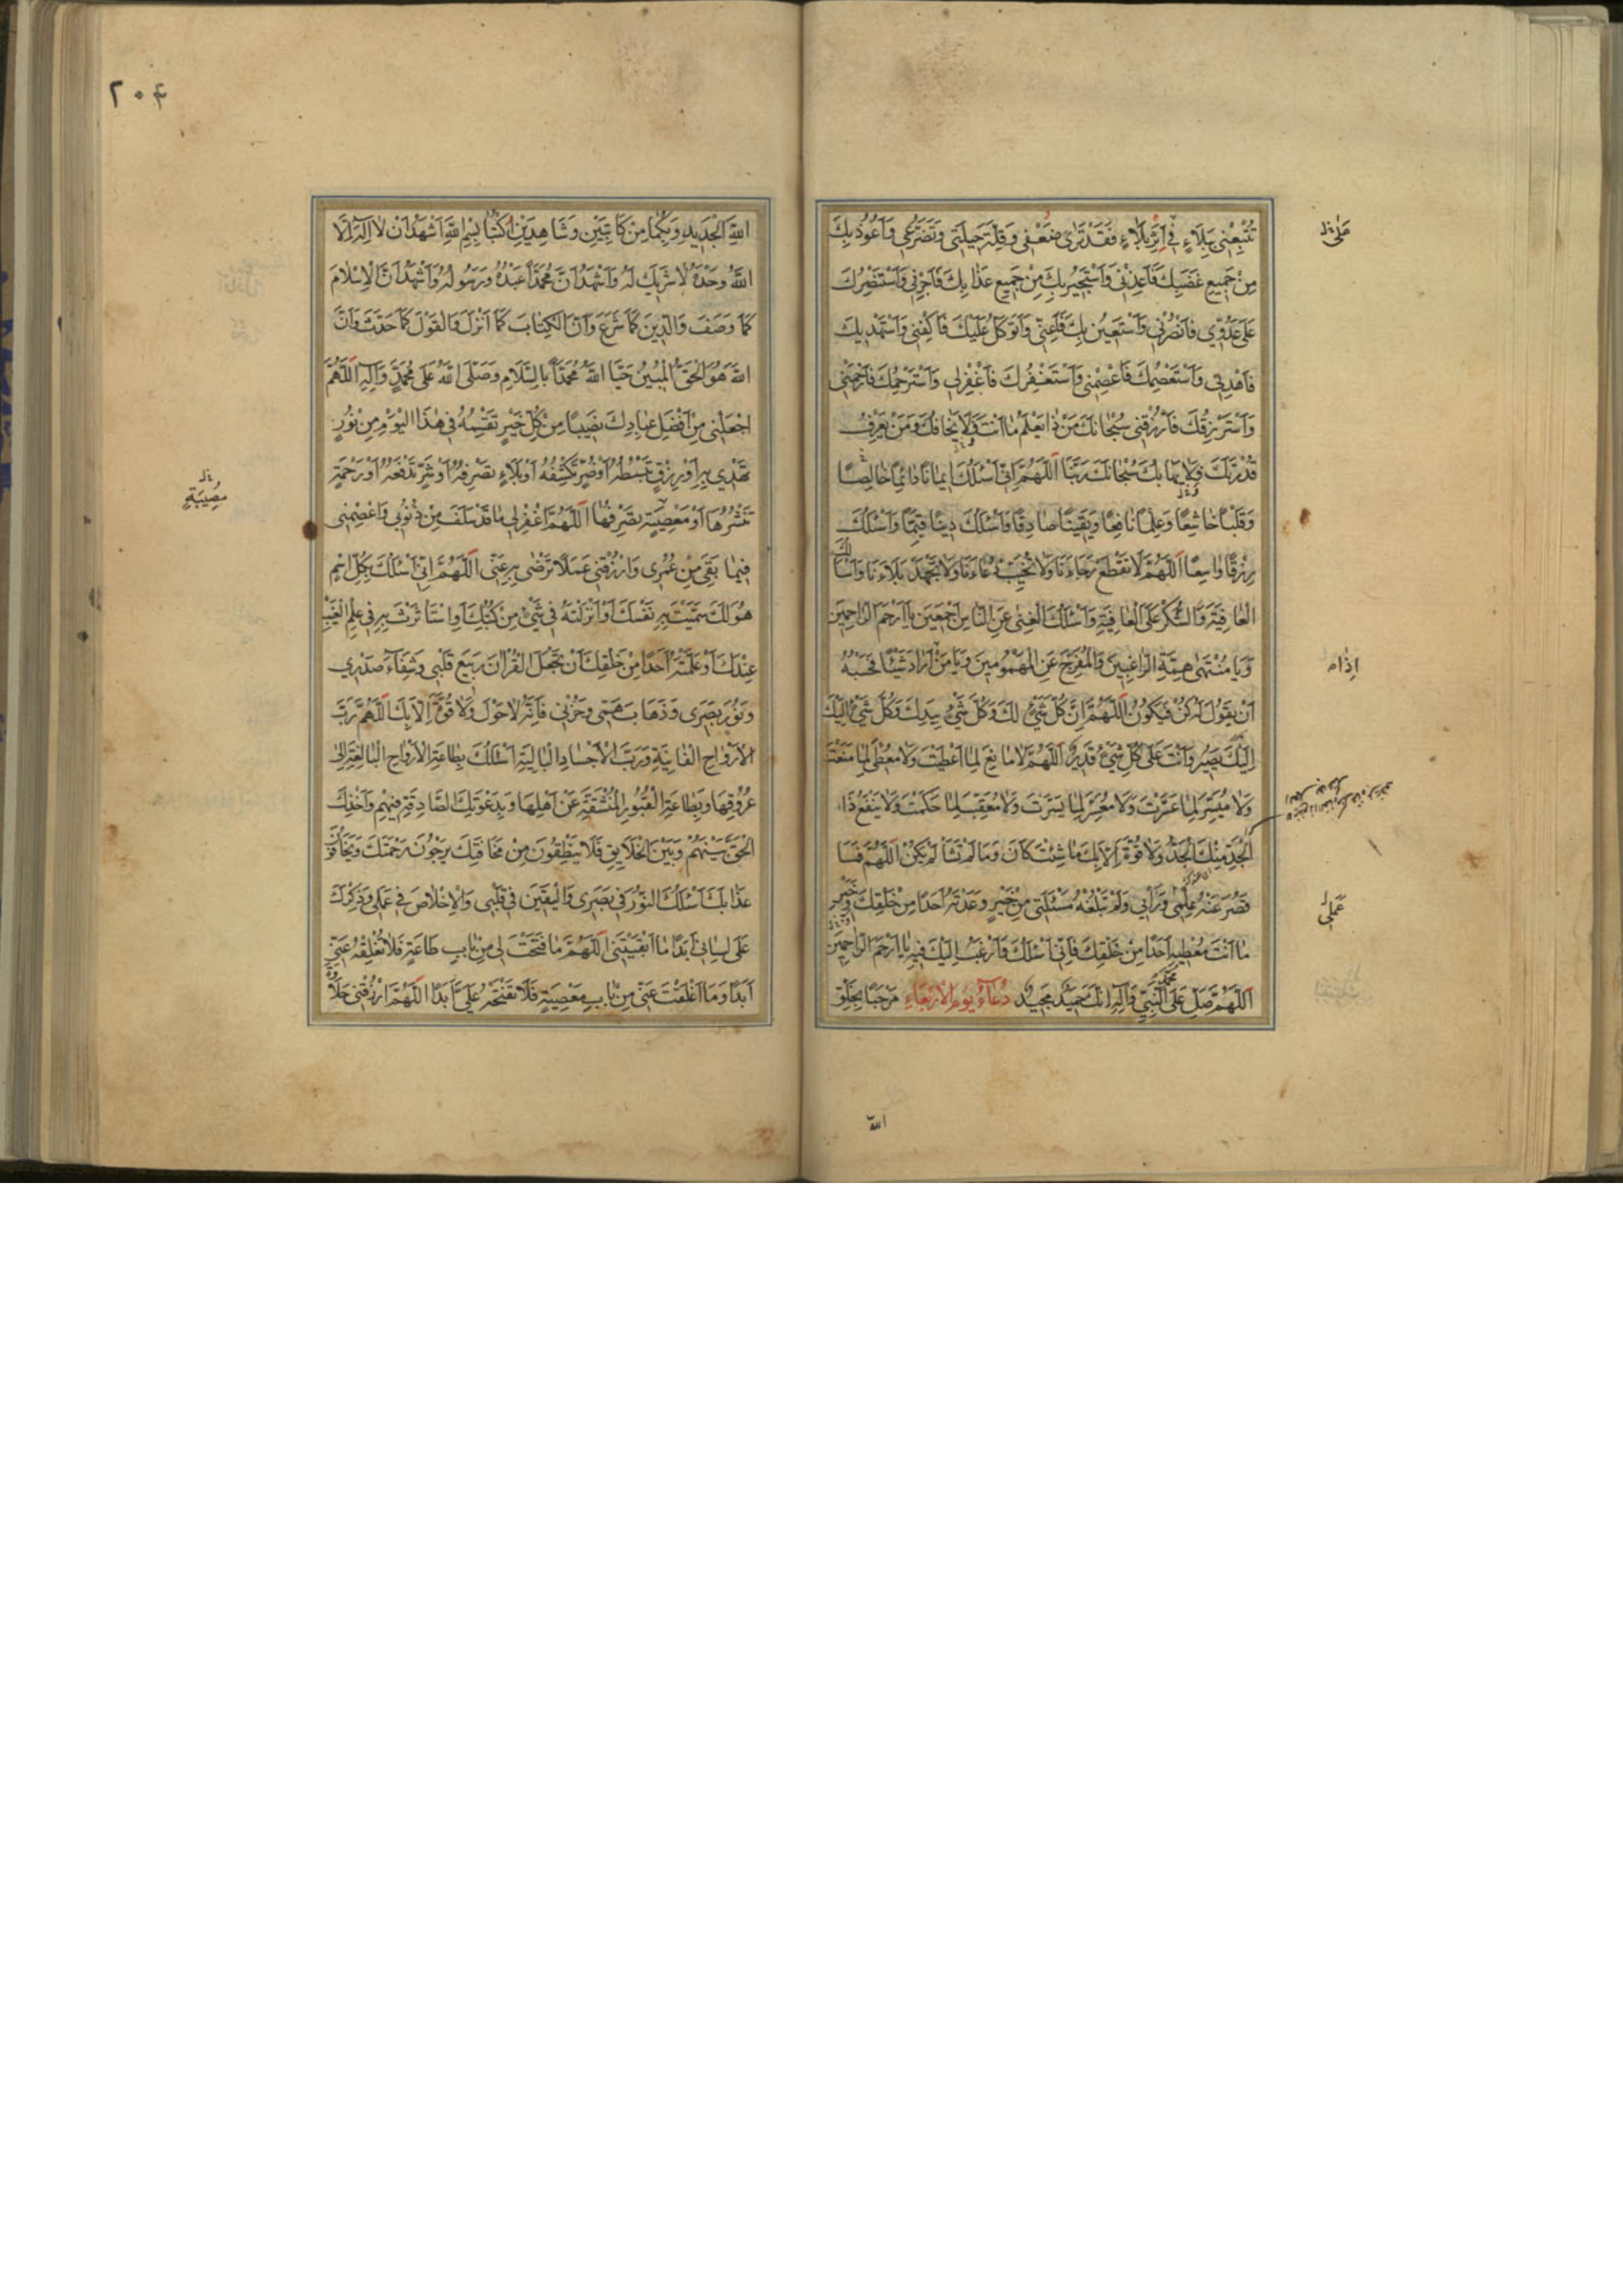 تُتْبِعْنِي بِبَلَاءٍ فِي اَثَرِ بَلَاءٍ فَقَدْ تَرٰى ضَعْفِي وَقِلَّةَ حِيلَتِي وَتَضَرُّعِي وَاَعُوذُ بِكَ
مِنْ جَمِيعِ غَضَبِكَ فَاَعِذْنِي وَاَسْتَجِيرُ بِكَ مِنْ جَمِيعِ عَذَابِكَ فَاَجِرْنِي وَاَسْتَنْصِرُكَ
عَلٰى عَدُوِّي فَانْصُرْنِي وَاَسْتَعِينُ بِكَ فَاَعِنِّي وَاَتَوَكَّلُ عَلَيْكَ فَاكْفِنِي وَاَسْتَهْدِيكَ
فَاهْدِنِي وَاَسْتَعْصِمُكَ فَاعْصِمْنِي وَاَسْتَغْفِرُكَ فَاغْفِرْلِي وَاَسْتَرْحِمُكَ فَارْحَمْنِي
وَاَسْتَرْزِقُكَ فَارْزُقْنِي سُبْحَانَكَ مَنْ ذَا يَعْلَمُ مَا اَنْتَ وَلَا يَخَافُكَ وَمَنْ يَعْرِفُ
قُدْرَتَكَ وَلَا يَهَابُكَ سُبْحَانَكَ رَبَّنَا اَللّٰهُمَّ اِنِّي اَسْئَلُكَ اِيمَانًا دَائِمًا خَالِصًا
وَقَلْبًا خَاشِعًا وَعِلْمًا نَافِعًا وَيَقِينًا صَادِقًا وَاَسْئَلُكَ دِينًا قَيِّمًا وَاَسْئَلُكَ
رِزْقًا وَاسِعًا اَللّٰهُمَّ لَا تَقْطَعْ رَجَاءَنَا وَلَا تُخَيِّبْ دُعَاءَنَا وَلَا تَجْهَدْ بَلَاءَنَا وَاَسْاَلُكَ
الْعَافِيَةَ وَالشُّكْرَ عَلَى الْعَافِيَةِ وَاَسْئَلُكَ الْغِنٰى عَنِ النَّاسِ اَجْمَعِينَ يَا اَرْحَمَ الرَّاحِمِينَ
وَيَا مُنْتَهٰى هِمَّةِ الرَّاغِبِينَ وَالْمُفَرِّجَ عَنِ الْمَهْمُومِينَ وَيَا مَنْ اَرَادَ شَيْئًا فَحَسْبُهُ
اَنْ يَقُولَ لَهُ كُنْ فَيَكُونُ اَللّٰهُمَّ اِنَّ كُلَّ شَيْءٍ لَكَ وَكُلَّ شَيْءٍ بِيَدِكَ وَكُلَّ شَيْءٍ اِلَيْكَ
اِلَيْكَ يَصِيرُ وَاَنْتَ عَلٰى كُلِّ شَيْءٍ قَدِيرٌ اَللّٰهُمَّ لَا مَانِعَ لِمَا اَعْطَيْتَ وَلَا مُعْطِيَ لِمَا مَنَعْتَ
وَلَا مُيَسِّرَ لِمَا عَسَّرْتَ وَلَا مُعَسِّرَ لِمَا يَسَّرْتَ وَلَا مُعَقِّبَ لِمَا حَكَمْتَ وَلَا يَنْفَعُ ذَا
الْجَدِّ مِنْكَ الْجَدُّ وَلَا قُوَّةَ اِلَّا بِكَ مَا شِئْتَ كَانَ وَمَا لَمْ تَشَأْ لَمْ يَكُنْ اَللّٰهُمَّ فَمَا
قَصُرَ عَنْهُ عِلْمِي وَرَأْيِي وَلَمْ تَبْلُغْهُ مَسْئَلَتِي مِنْ خَيْرٍ وَعَدْتَهُ اَحَدًا مِنْ خَلْقِكَ وَخَيْرٍ
مَا اَنْتَ مُعْطِيهِ اَحَدًا مِنْ خَلْقِكَ فَاِنِّي اَسْئَلُكَ وَاَرْغَبُ اِلَيْكَ فِيهِ يَا اَرْحَمَ الرَّاحِمِينَ
اَللّٰهُمَّ صَلِّ عَلٰى مُحَمَّدٍ النَّبِيِّ وَآلِهِ اِنَّكَ حَمِيدٌ مَجِيدٌ دُعَاءُ يَوْمِ الْاَرْبَعَاءِ مَرْحَبًا بِخَلْقِ
اِذَا
عَمَلِي
اللّٰهِ
٢٠٤
اللّٰهِ الْجَدِيدِ وَبِكُمَا مِنْ كَاتِبَيْنِ وَشَاهِدَيْنِ اُكْتُبَا بِسْمِ اللّٰهِ اَشْهَدُ اَنْ لَا اِلٰهَ اِلَّا
اللّٰهُ وَحْدَهُ لَا شَرِيكَ لَهُ وَاَشْهَدُ اَنَّ مُحَمَّدًا عَبْدُهُ وَرَسُولُهُ وَاَشْهَدُ اَنَّ الْاِسْلَامَ
كَمَا وَصَفَ وَالدِّينَ كَمَا شَرَعَ وَاَنَّ الْكِتَابَ كَمَا اَنْزَلَ وَالْقَوْلَ كَمَا حَدَّثَ وَاَنَّ
اللّٰهَ هُوَ الْحَقُّ الْمُبِينُ حَيَّا اللّٰهُ مُحَمَّدًا بِالسَّلَامِ وَصَلَّى اللّٰهُ عَلٰى مُحَمَّدٍ وَآلِهِ اَللّٰهُمَّ
اجْعَلْنِي مِنْ اَفْضَلِ عِبَادِكَ نَصِيبًا مِنْ كُلِّ خَيْرٍ تَقْسِمُهُ فِي هٰذَا الْيَوْمِ مِنْ نُورٍ
تَهْدِي بِهِ اَوْ رِزْقٍ تَبْسُطُهُ اَوْ ضُرٍّ تَكْشِفُهُ اَوْ بَلَاءٍ تَصْرِفُهُ اَوْ شَرٍّ تَدْفَعُهُ اَوْ رَحْمَةٍ
تَنْشُرُهَا اَوْ مَعْصِيَةٍ تَصْرِفُهَا اَللّٰهُمَّ اغْفِرْلِي مَا قَدْ سَلَفَ مِنْ ذُنُوبِي وَاعْصِمْنِي
فِيمَا بَقِيَ مِنْ عُمْرِي وَارْزُقْنِي عَمَلًا تَرْضٰى بِهِ عَنِّي اَللّٰهُمَّ اِنِّي اَسْئَلُكَ بِكُلِّ اسْمٍ
هُوَ لَكَ سَمَّيْتَ بِهِ نَفْسَكَ اَوْ اَنْزَلْتَهُ فِي شَيْءٍ مِنْ كُتُبِكَ اَوِ اسْتَأْثَرْتَ بِهِ فِي عِلْمِ الْغَيْبِ
عِنْدَكَ اَوْ عَلَّمْتَهُ اَحَدًا مِنْ خَلْقِكَ اَنْ تَجْعَلَ الْقُرْآنَ رَبِيعَ قَلْبِي وَشِفَاءَ صَدْرِي
وَنُورَ بَصَرِي وَذَهَابَ هَمِّي وَحُزْنِي فَاِنَّهُ لَا حَوْلَ وَلَا قُوَّةَ اِلَّا بِكَ اَللّٰهُمَّ رَبَّ
الْاَرْوَاحِ الْفَانِيَةِ وَرَبَّ الْاَجْسَادِ الْبَالِيَةِ اَسْئَلُكَ بِطَاعَةِ الْاَرْوَاحِ الْبَالِغَةِ اِلٰى
عُرُوقِهَا وَبِطَاعَةِ الْقُبُورِ الْمُنْشَقَّةِ عَنْ اَهْلِهَا وَبِدَعْوَتِكَ الصَّادِقَةِ فِيهِمْ وَاَخْذِكَ
الْحَقَّ بَيْنَهُمْ وَبَيْنَ الْخَلَايِقِ فَلَا يَنْطِقُونَ مِنْ مَخَافَتِكَ يَرْجُونَ رَحْمَتَكَ وَيَخَافُونَ
عَذَابَكَ اَسْئَلُكَ النُّورَ فِي بَصَرِي وَالْيَقِينَ فِي قَلْبِي وَالْاِخْلَاصَ فِي عَمَلِي وَذِكْرَكَ
عَلٰى لِسَانِي اَبَدًا مَا اَبْقَيْتَنِي اَللّٰهُمَّ مَا فَتَحْتَ لِي مِنْ بَابِ طَاعَةٍ فَلَا تُغْلِقْهُ عَنِّي
اَبَدًا وَمَا اَغْلَقْتَ عَنِّي مِنْ بَابِ مَعْصِيَةٍ فَلَا تَفْتَحْهُ عَلَيَّ اَبَدًا اَللّٰهُمَّ ارْزُقْنِي حَلَاوَةَ
مُصِيبَةٍ